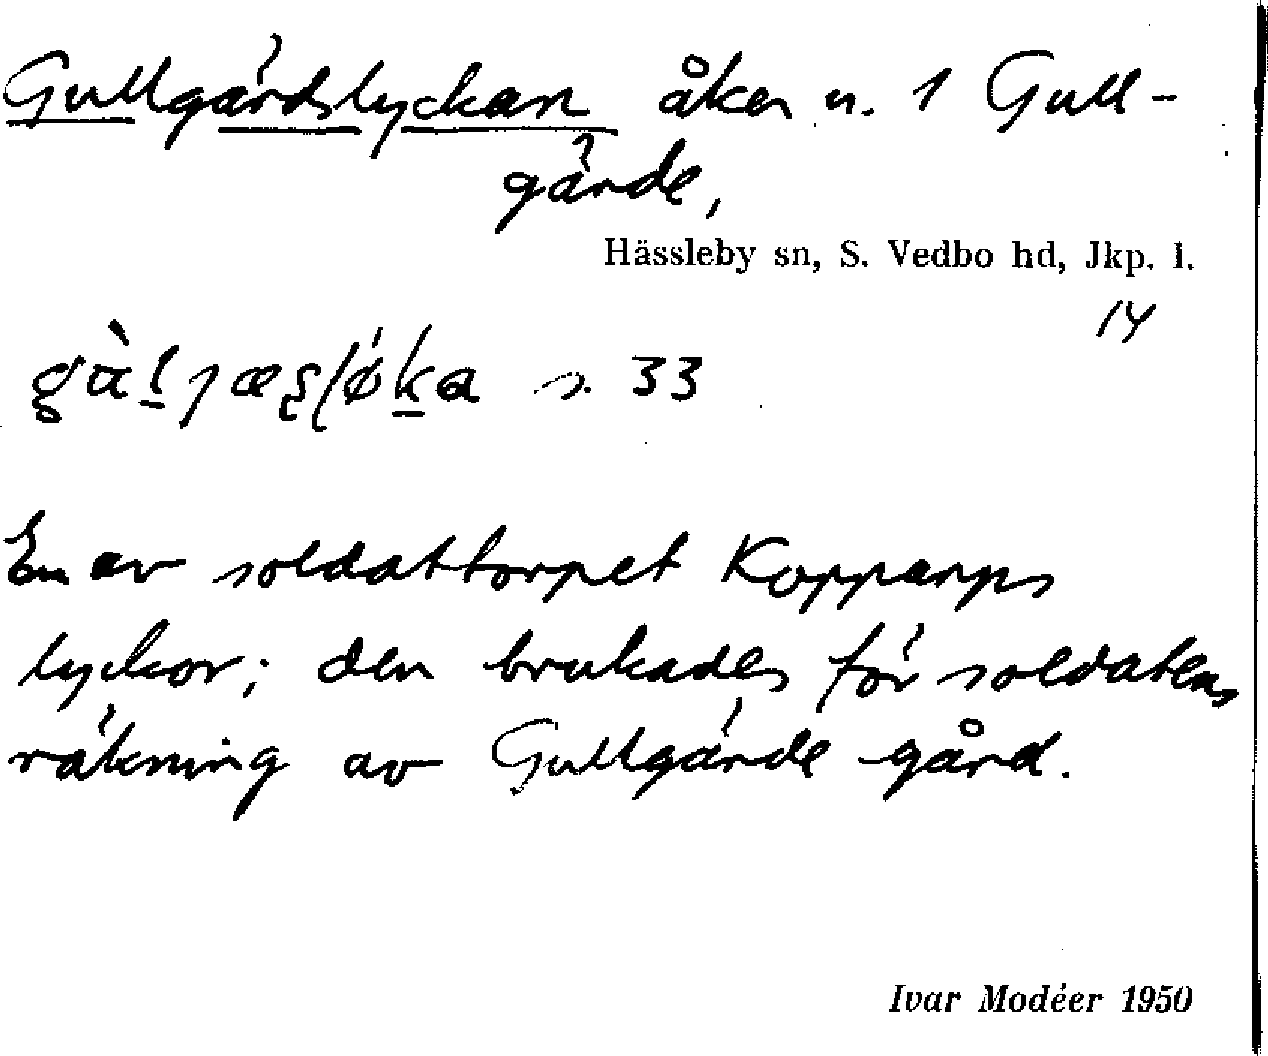 Gullgärdslyckan åker u. 1 Gull-
gärde,
Hässleby sn, S. Vedbo hd, Jkp. l.
14
s. 33
En av soldattorpet Kopparps
lyckor; den brukades för soldatens
räkning av Gullgärde gård.
Ivar Modéer 1950